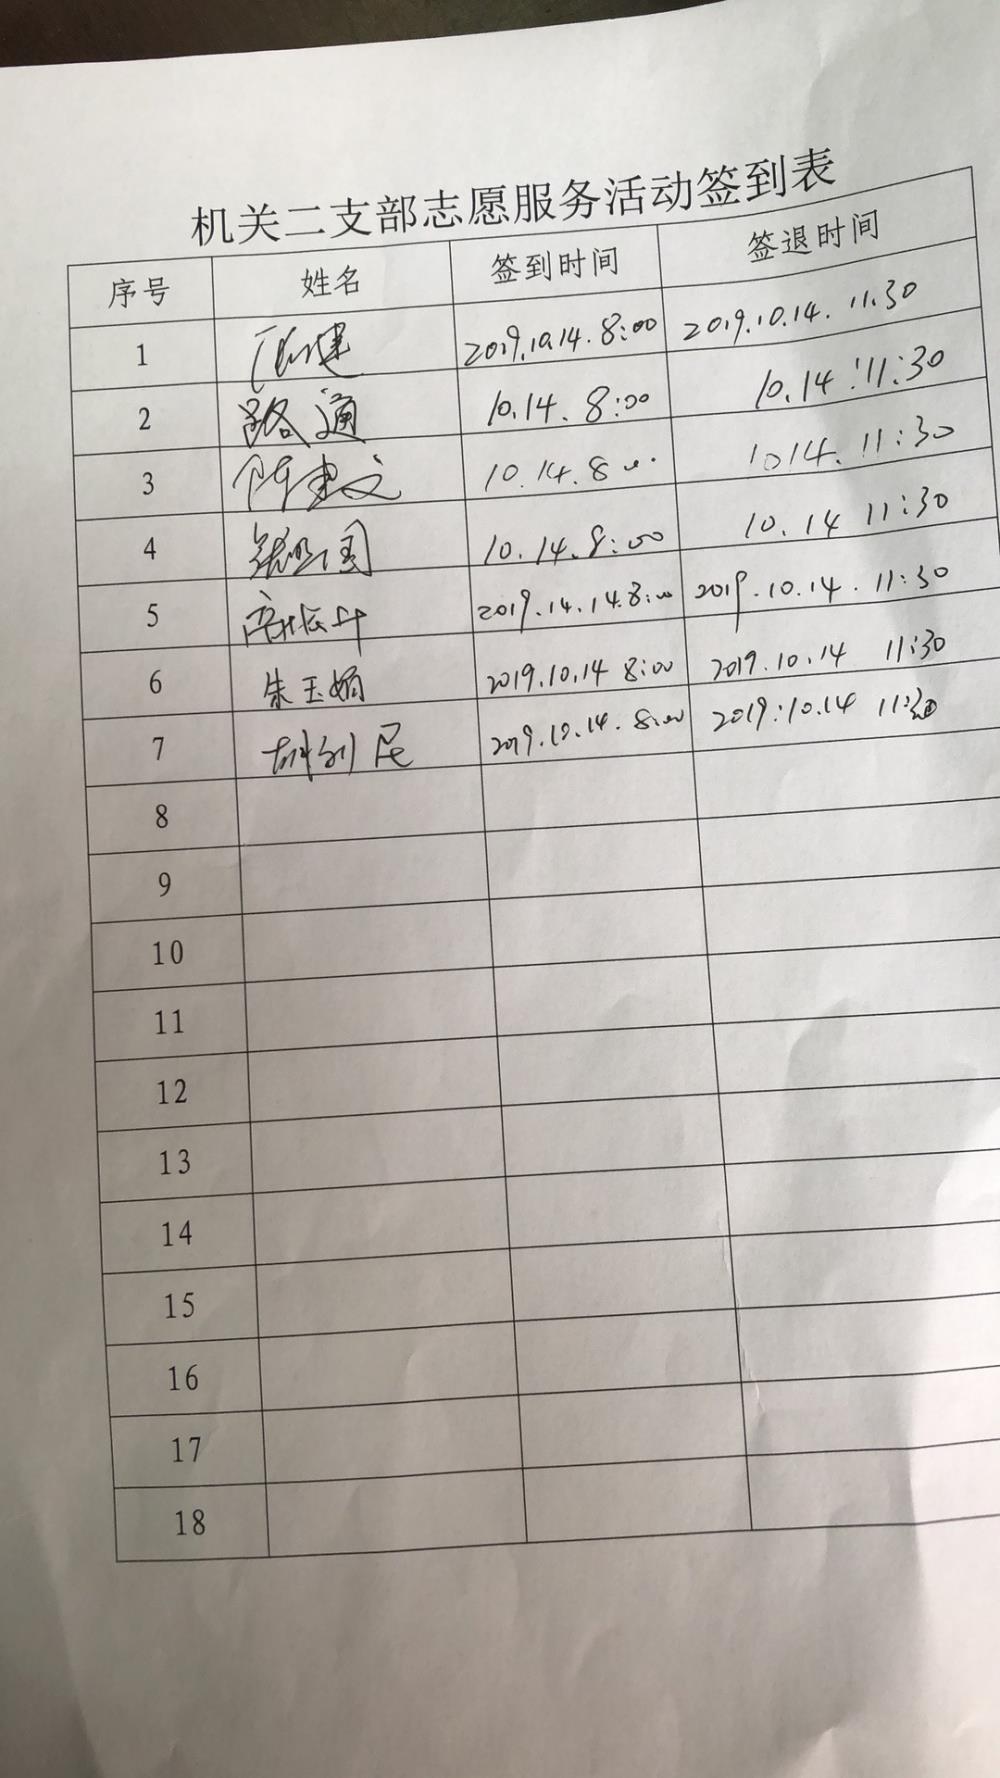 机关二支部志愿服务活动签到表
序号 姓名 签到时间 签退时间
1 2019.10.14.8:00 2019.10.14. 11.30
2 路通 10.14.8:00 10.14!11:30
3 陈建文 10.14.8 1014.11:30
4 10.14.8:00 10.14 11:30
5 2019.14.14.8:00 2019.10.14.11:30
6 朱玉娟 2019.10.14 8:00 2019.10.14 11:30
7 2019.10.14.8:00 2019.10.14 11:30
8
9
10
11
12
13
14
15
16
17
18